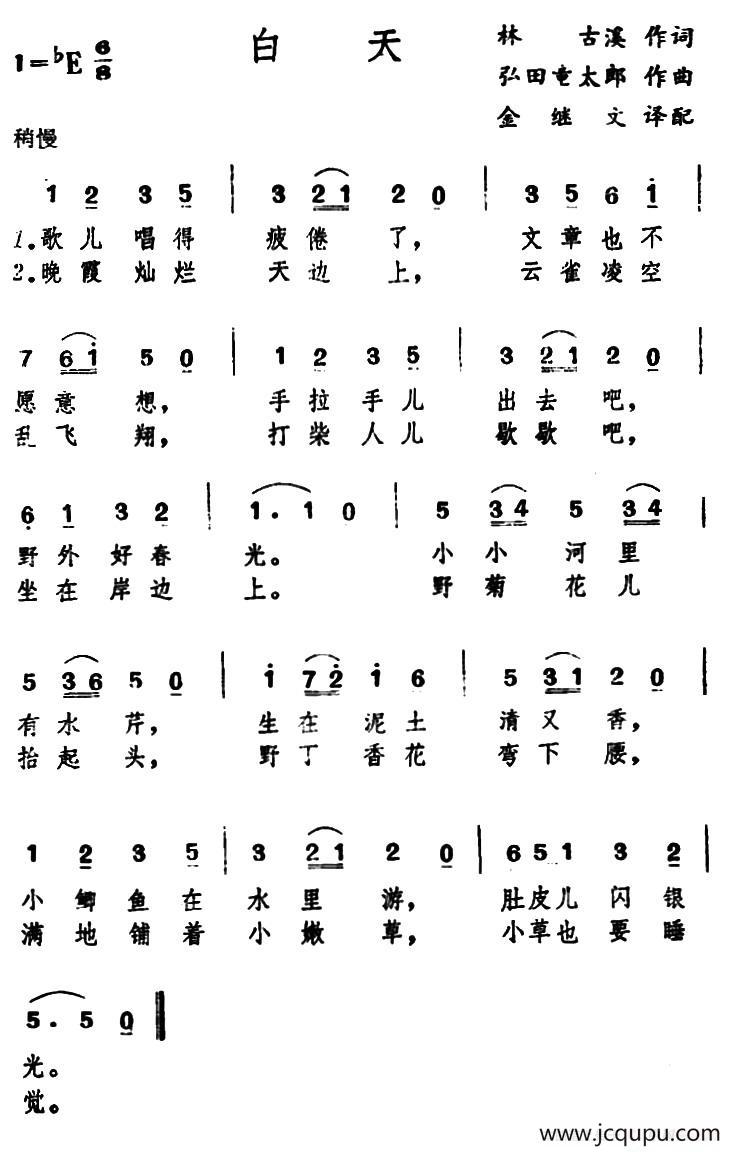 白天
1=♭E 6/8
林古溪 作词
弘田竜太郎 作曲
金继文 译配
稍慢
1 2 3 5 | 3 2 1 2 0 | 3 5 6 i |
1.歌儿 唱得 疲倦 了， 文章也不
2.晚霞 灿烂 天边 上， 云雀凌空
7 6 i 5 0 | 1 2 3 5 | 3 2 1 2 0 |
愿意 想， 手拉手儿 出去 吧，
乱飞 翔， 打柴人儿 歇歇 吧，
6 1 3 2 | 1. 1 0 | 5 3 4 5 3 4 |
野外好春 光。 小小 河里
坐在岸边 上。 野菊 花儿
5 3 6 5 0 | i 7 2 i 6 | 5 3 1 2 0 |
有水 芹， 生在 泥土 清又 香，
抬起 头， 野丁 香花 弯下 腰，
1 2 3 5 | 3 2 1 2 0 | 6 5 1 3 2 |
小鲫鱼在 水里 游， 肚皮儿闪银
满地铺着 小嫩 草， 小草也要睡
5. 5 0
光。
觉。
www.jcqupu.com